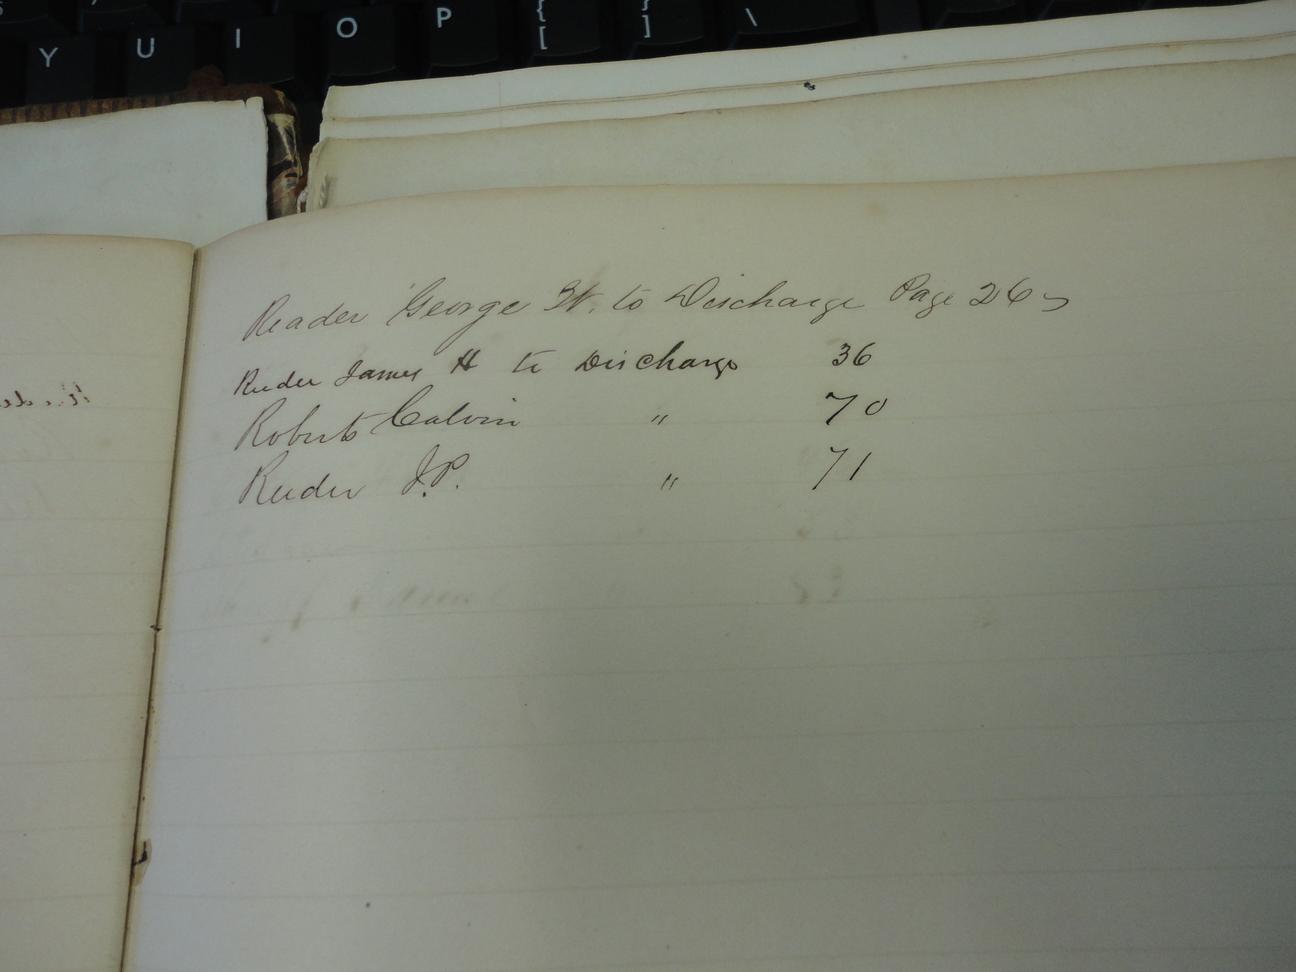 Y U I O P { [ } ] \
Reader George W. to Discharge Page 26
Reeder James H to Discharge 36
Roberts Calvin " 70
Reeder J.P. " 71